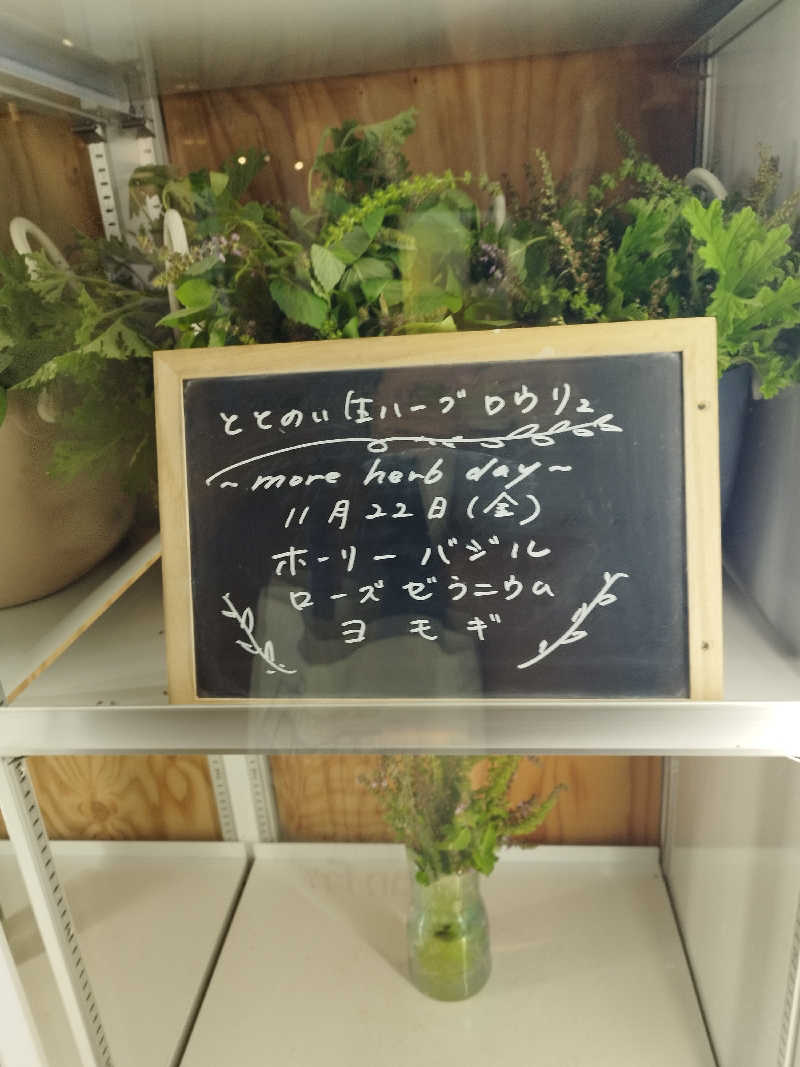 ととのい生ハーブロウリュ
~more herb day~
11月22日(金)
ホーリーバジル
ローズゼラニウム
ヨモギ